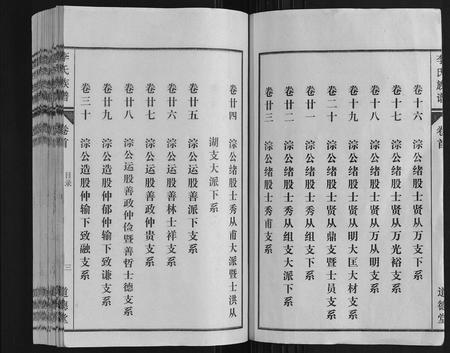 李氏族谱
卷首
道德堂
卷十六 淙公绪股士贤从万支下系
卷十七 淙公绪股士贤从万光裕支系
卷十八 淙公绪股士贤从万从明支系
卷十九 淙公绪股士贤从明大匡大材支系
卷二十 淙公绪股士贤从鼎支暨士员支系
卷廿一 淙公绪股士秀从组支下系
卷廿二 淙公绪股士秀从组支大派下系
卷廿三 淙公绪股士秀甫支系
卷廿四 淙公绪股士秀从甫大派暨士洪从
湖支大派下系
卷廿五 淙公运股善政下支系
卷廿六 淙公运股善林士祥支系
卷廿七 淙公运股善政仲贵支系
卷廿八 淙公运股善政仲俭暨善哲士德支系
卷廿九 淙公造股仲郁仲输下致谦支系
卷三十 淙公造股仲输下致融支系
李氏族谱
卷首
目录
三
道德堂